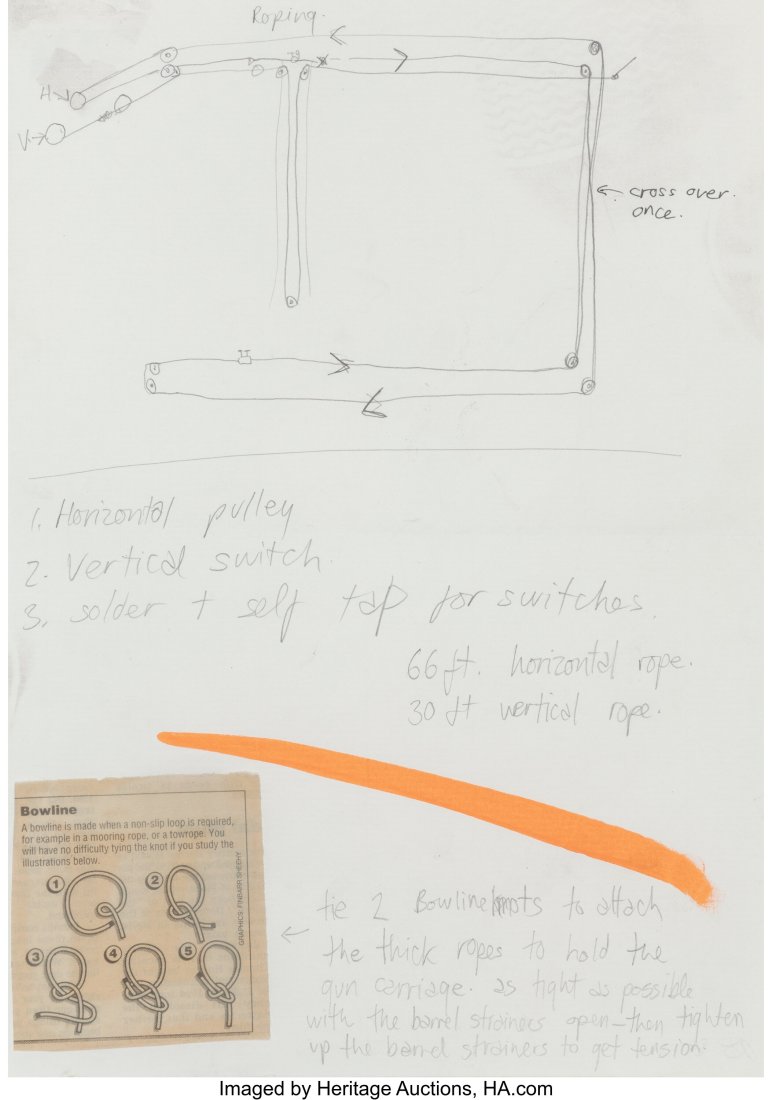 Roping.
H→
V→
← cross over.
once.
1. Horizontal pulley
2. Vertical switch.
3. solder + self tap for switches.
66 ft. horizontal rope.
30 ft vertical rope.
Bowline
A bowline is made when a non-slip loop is required,
for example in a mooring rope, or a towrope. You
will have no difficulty tying the knot if you study the
illustrations below.
1
2
3
4
5
GRAPHICS: FINBARR SHEEHY
← tie 2 Bowline knots to attach
the thick ropes to hold the
gun carriage. as tight as possible
with the barrel strainers open - then tighten
up the barrel strainers to get tension.
Imaged by Heritage Auctions, HA.com